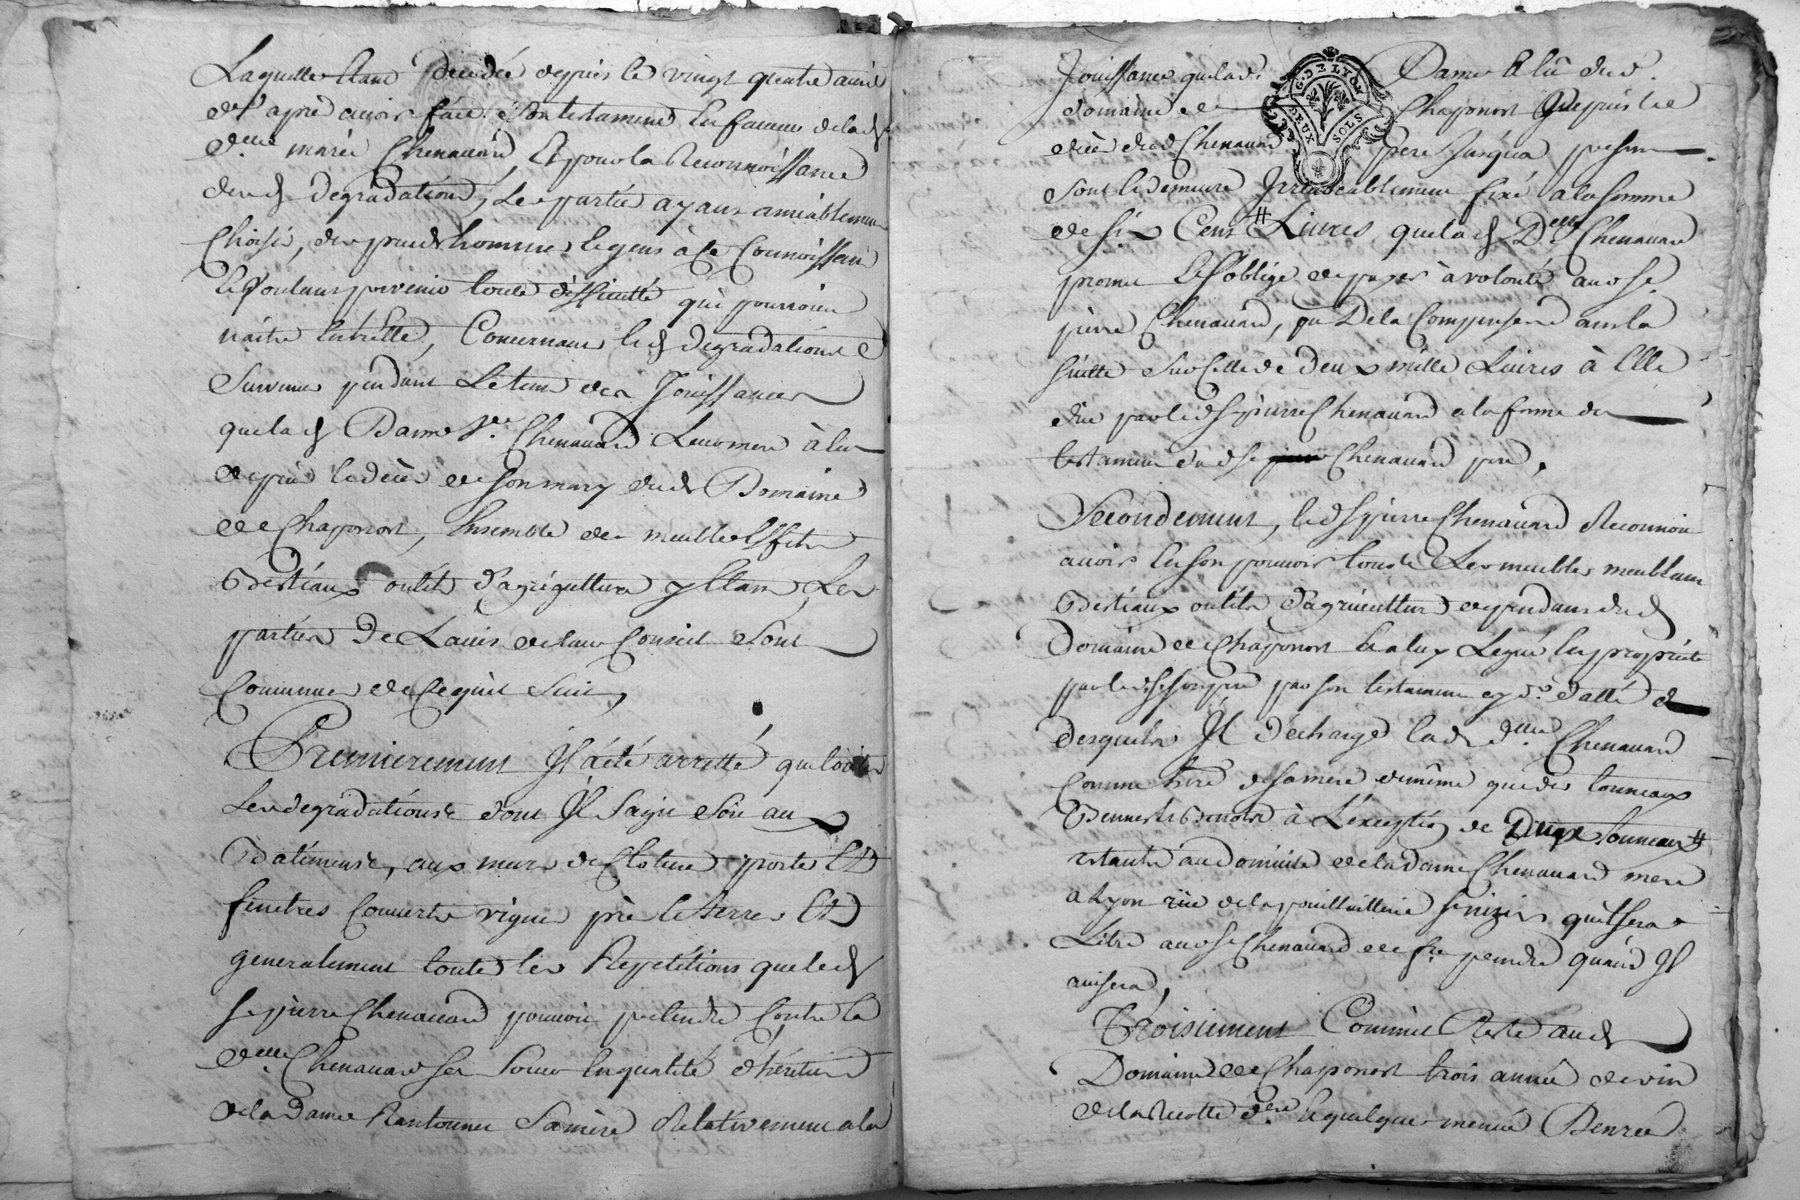 Laquelle Etant décédée depuis le vingt quatre avril
dt après avoir fait son testament En faveur de lad
dlle marie Chenavard, Et pour la Reconnoissance
desd degradations, Les parties ayant amiablement
Choisi, des prud hommes & gens à ce Connoissant
Et voulant prevenir toute difficulté qui pourroient
naitre Entrelle, Concernant lesd degradations
Survenues pendant Le tems des Jouissances
que lad Dame Ve Chenavard Leur mere à Eu
depuis le décès de son mary dud Domaine
de Chaponost, Ensemble des meubles Effets
Bestiaux outils d'agriculture y Etant, Les
parties De L'avis de leur Conseil Sont
Convenues de Ce qui Suit,
Premierement Il à été arretté que toutes
Les degradations dont Il s'agit soit aux
Batiments, aux murs de Cloture portes Et
fenetres Couverts vignes près & terres Et
generalement toutes les Repetitions que led
sr pierre Chenavard pouvoit pretendre Contre la
dlle Chenavard sa Soeur En qualité d'héritiere
de la dame Rantonnet Sa mère Relativement a la
Jouissance que lad Dame à Eu dud
domaine de Chaponost Depuis le
décès dud Chenavard père Jusqu'a present
sont & demeure Irrevocablement fixé a la somme
de six Cent Livres que lad Dlle Chenavard
promet & s'oblige de payer à volonté aud sr
pierre Chenavard, ou De la Compenser dans la
suitte Sur Celle de deux mille Livres à Elle
due par led sr pierre Chenavard a la forme du
testament dud sr Chenavard pere,
Secondement, led sr pierre Chenavard Reconnoit
avoir En son pouvoir tous Les meubles meublant
Bestiaux outils d'agriculture dependans dud
Domaine de Chaponost & a luy Legué En propriété
par led sr son pere par son testament cy dt datté &
desquels Il décharge lad dlle Chenavard
Comme here de sa mere de même que des tonneaux
Bennes & Benots à L'exception de Deux tonneaux
restants au domicile de la dame Chenavard mere
a Lyon rüe de la poullaillerie St nizier quil sera
Libre aud sr Chenavard de fre prendre quand Il
avisera,
Troisiement Comme il Reste aud
Domaine de Chaponost trois année de vin
de la Recolte dere & quelque menue Denrée
G. DE LYON
DEUX SOLS